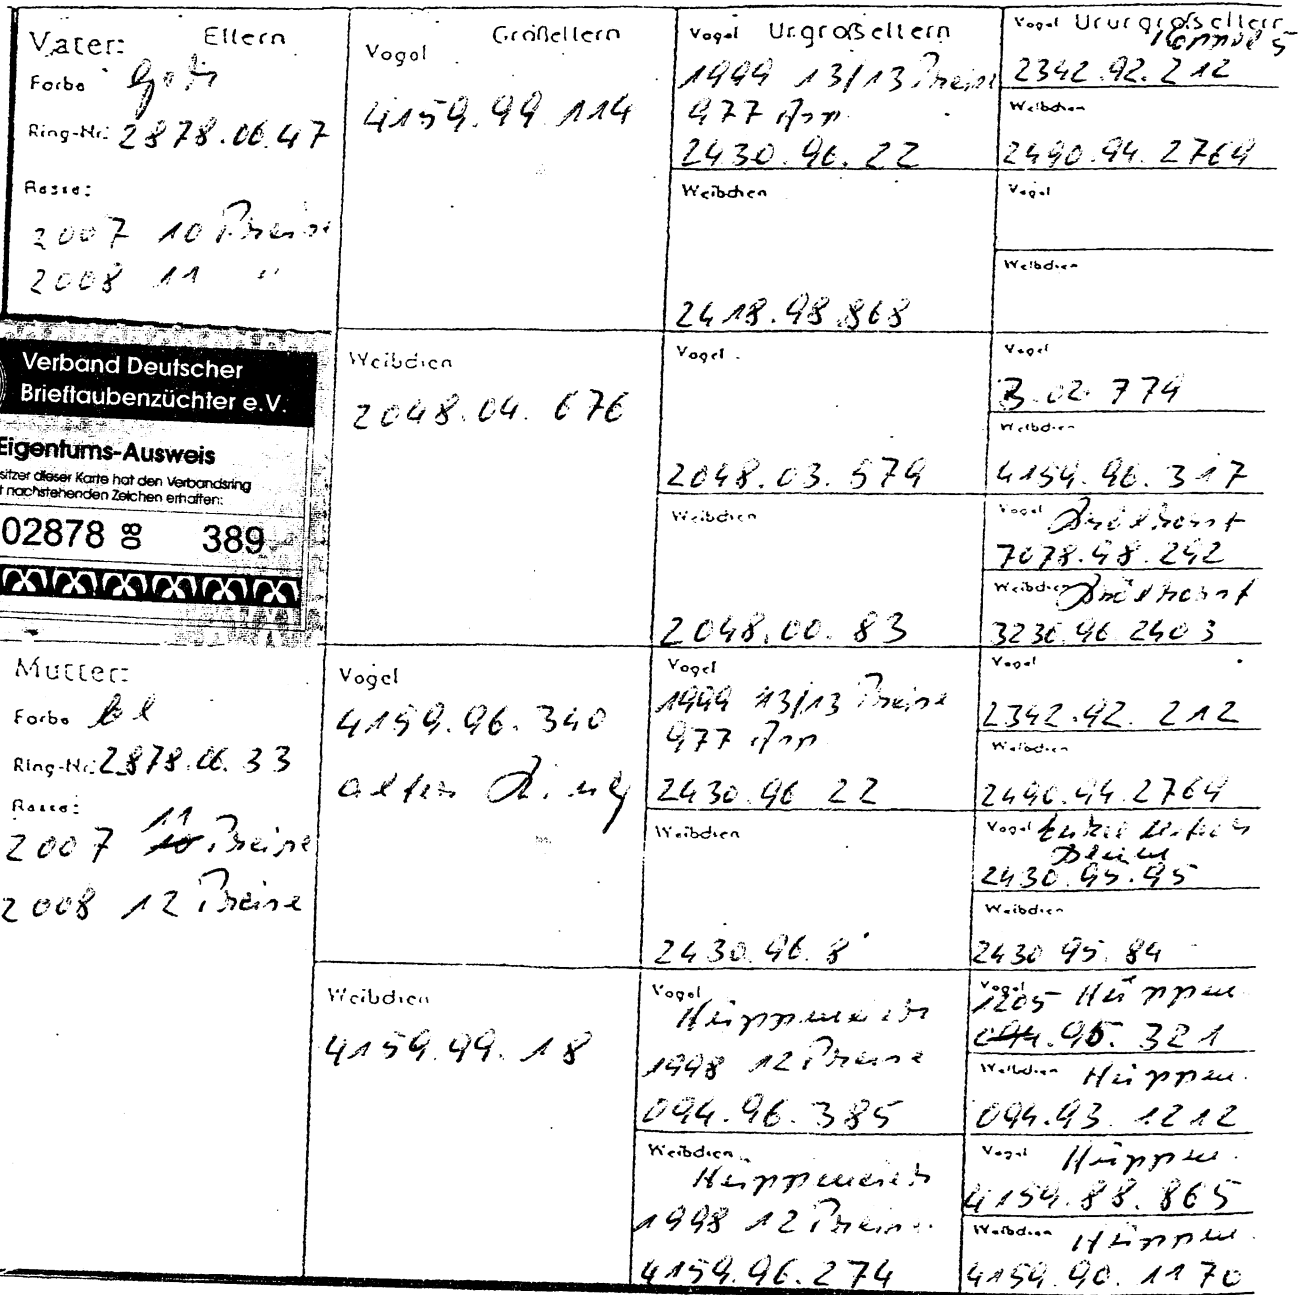 Eltern
Vater:
Farbe
Ring-Nr: 2878.06.47
Rasse:
2007 10 Preise
2008 11 "
Verband Deutscher
Brieftaubenzüchter e.V.
Eigentums-Ausweis
sitzer dieser Karte hat den Verbandsring
t nachstehenden Zeichen erhalten:
02878 08 389
Mutter:
Farbe bl
Ring-Nr: 2878.06.33
Rasse:
2007 11 Preise
2008 12 Preise
Großeltern
Vogel
4159.99.114
Weibchen
2048.04.676
Vogel
4159.96.340
alter
Weibchen
4159.99.18
Vogel Urgroßeltern
1999 13/13 Preise
977
2430.96.22
Weibchen
2418.98.868
Vogel
2048.03.579
Weibchen
2048.00.83
Vogel
1999 13/13 Preise
977
2430.96 22
Weibchen
2430.96.8
Vogel
1998 12 Preise
094.96.385
Weibchen
1998 12 Preise
4159.96.274
Vogel Ururgroßeltern
2342.92.212
Weibchen
2490.94.2769
Vogel
Weibchen
Vogel
B.02.779
Weibchen
4159.96.317
Vogel
7078.98.242
Weibchen
3236.96.2403
Vogel
2342.92.212
Weibchen
2490.94.2769
Vogel
2430.95.95
Weibchen
2430 95.84
Vogel
1205
95.321
Weibchen
094.93.1212
Vogel
4159.88.865
Weibchen
4159.90.1170